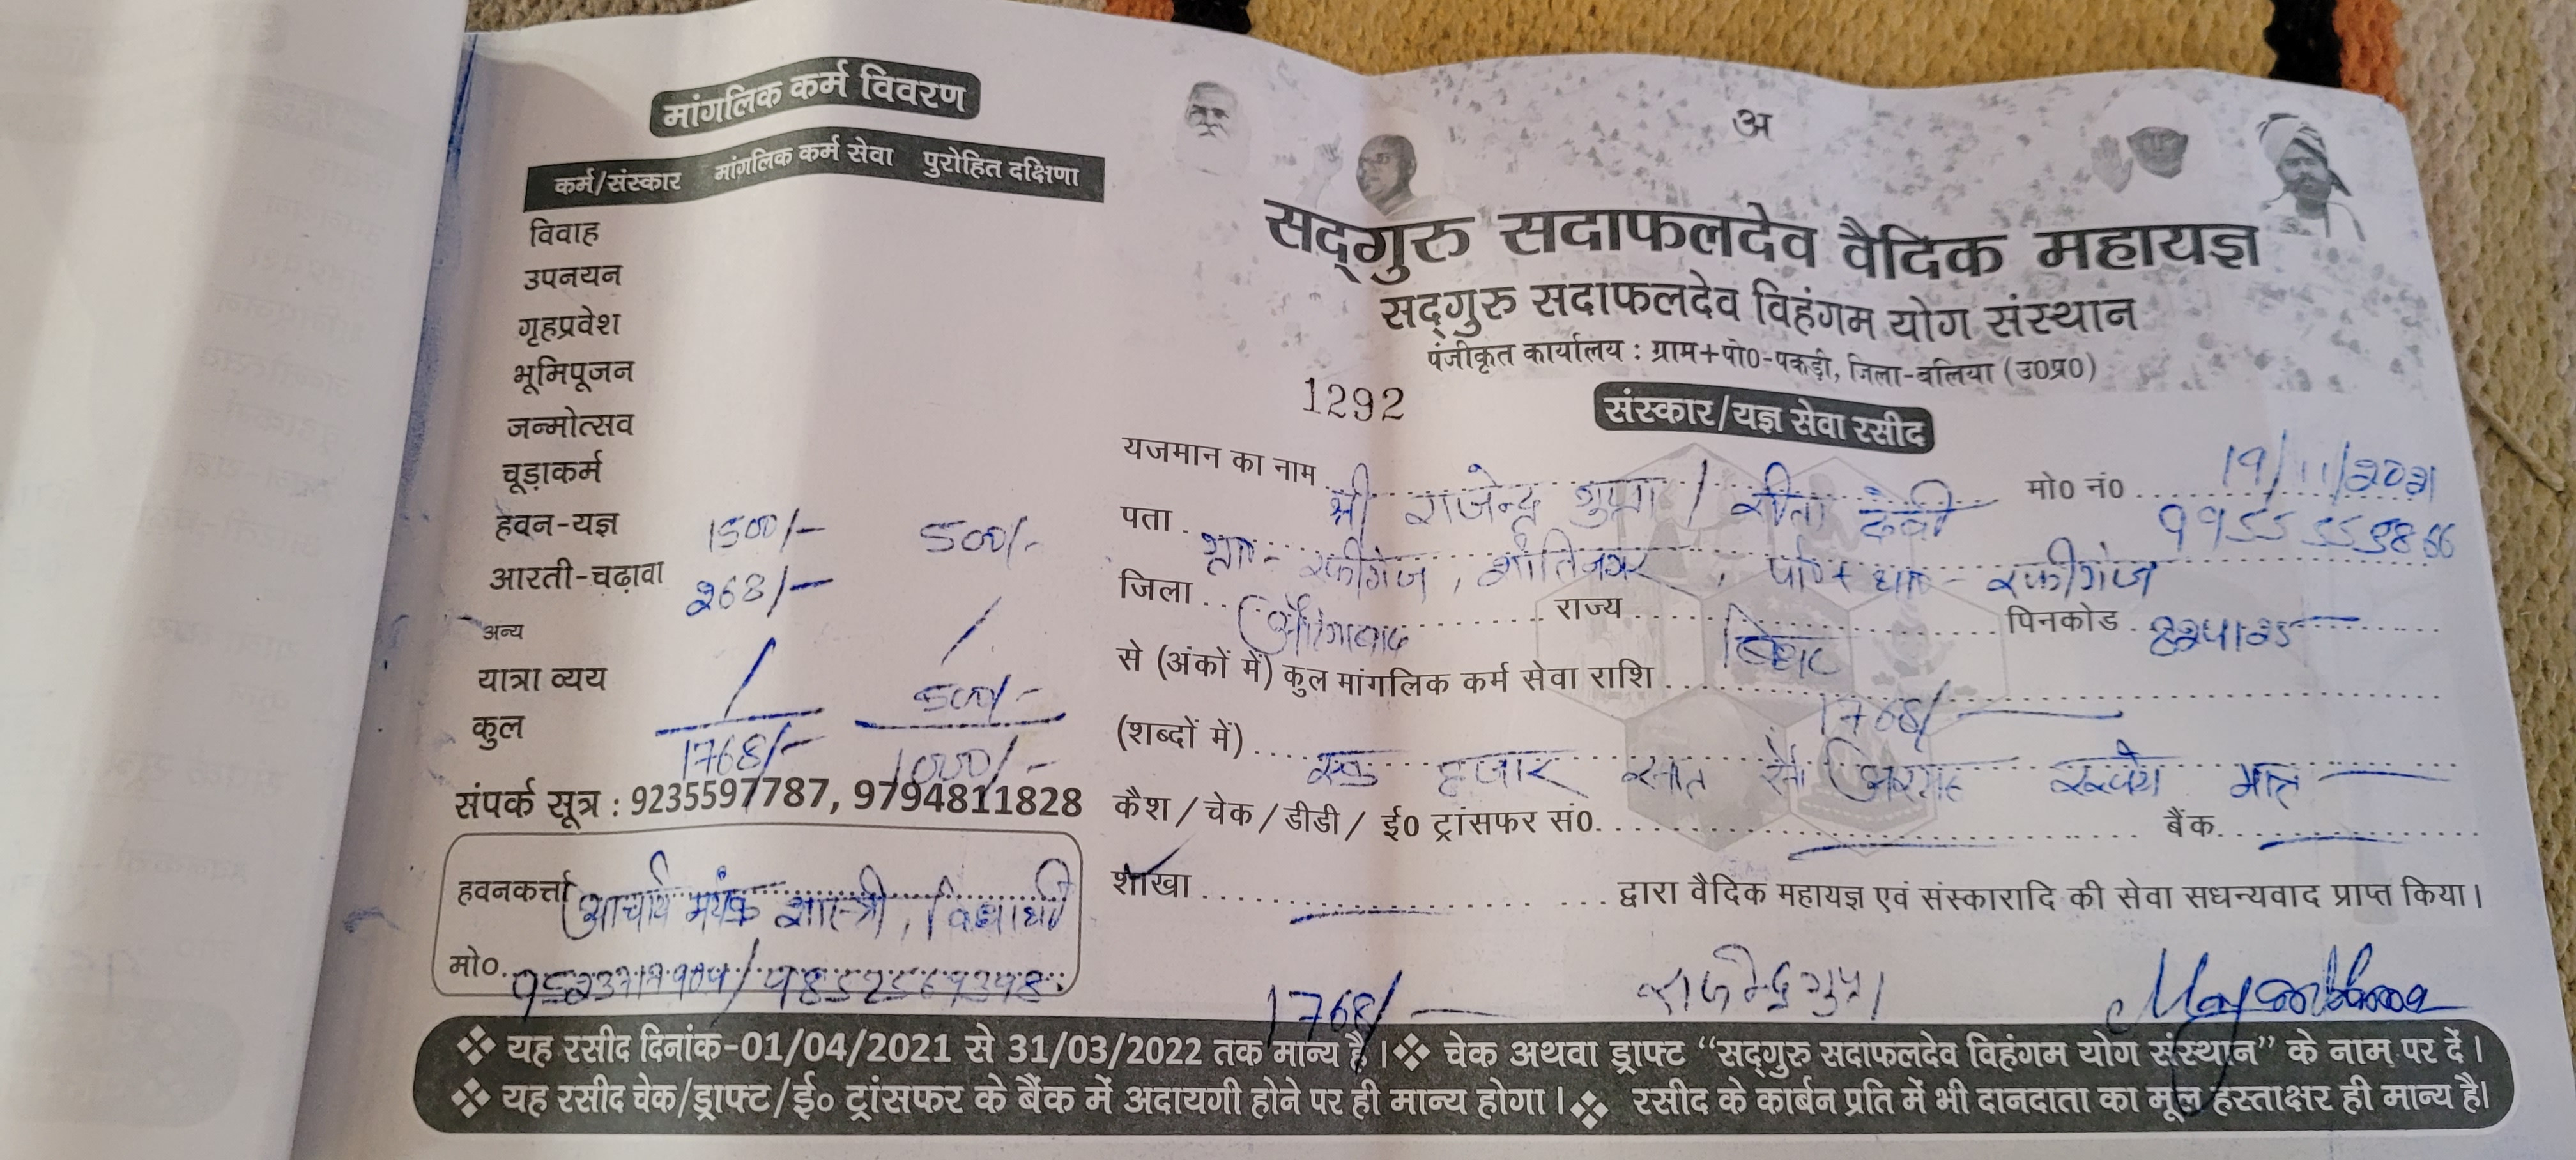 मांगलिक कर्म विवरण
कर्म/संस्कार मांगलिक कर्म सेवा पुरोहित दक्षिणा
विवाह
उपनयन
गृहप्रवेश
भूमिपूजन
जन्मोत्सव
चूड़ाकर्म
हवन-यज्ञ 1500/- 500/-
आरती-चढ़ावा 268/-
अन्य
यात्रा व्यय 500/-
कुल 1768/- 1000/-
संपर्क सूत्र : 9235597787, 9794811828
हवनकर्त्ता आचार्य मयंक शास्त्री,
मो०.
अ
सद्‌गुरु सदाफलदेव वैदिक महायज्ञ
सद्‌गुरु सदाफलदेव विहंगम योग संस्थान
पंजीकृत कार्यालय : ग्राम+पो0-पकड़ी, जिला-बलिया (उ0प्र0)
1292
संस्कार/यज्ञ सेवा रसीद
19/11/2021
यजमान का नाम श्री राजेन्द्र गुप्ता / रीता देवी मो0 नं0
पता रफीगंज, शांतिनगर, रफीगंज
जिला औरंगाबाद राज्य बिहार पिनकोड 824125
से (अंकों में) कुल मांगलिक कर्म सेवा राशि 1768/-
(शब्दों में) एक हजार सात सौ अरसठ रूपये मात्र
कैश / चेक / डीडी / ई0 ट्रांसफर सं0. बैंक
शाखा द्वारा वैदिक महायज्ञ एवं संस्कारादि की सेवा सधन्यवाद प्राप्त किया।
1768/- राजेन्द्र गुप्ता
❖ यह रसीद दिनांक-01/04/2021 से 31/03/2022 तक मान्य है।❖ चेक अथवा ड्राफ्ट “सद्‌गुरु सदाफलदेव विहंगम योग संस्थान” के नाम पर दें।
❖ यह रसीद चेक/ड्राफ्ट/ई० ट्रांसफर के बैंक में अदायगी होने पर ही मान्य होगा।❖ रसीद के कार्बन प्रति में भी दानदाता का मूल हस्ताक्षर ही मान्य है।